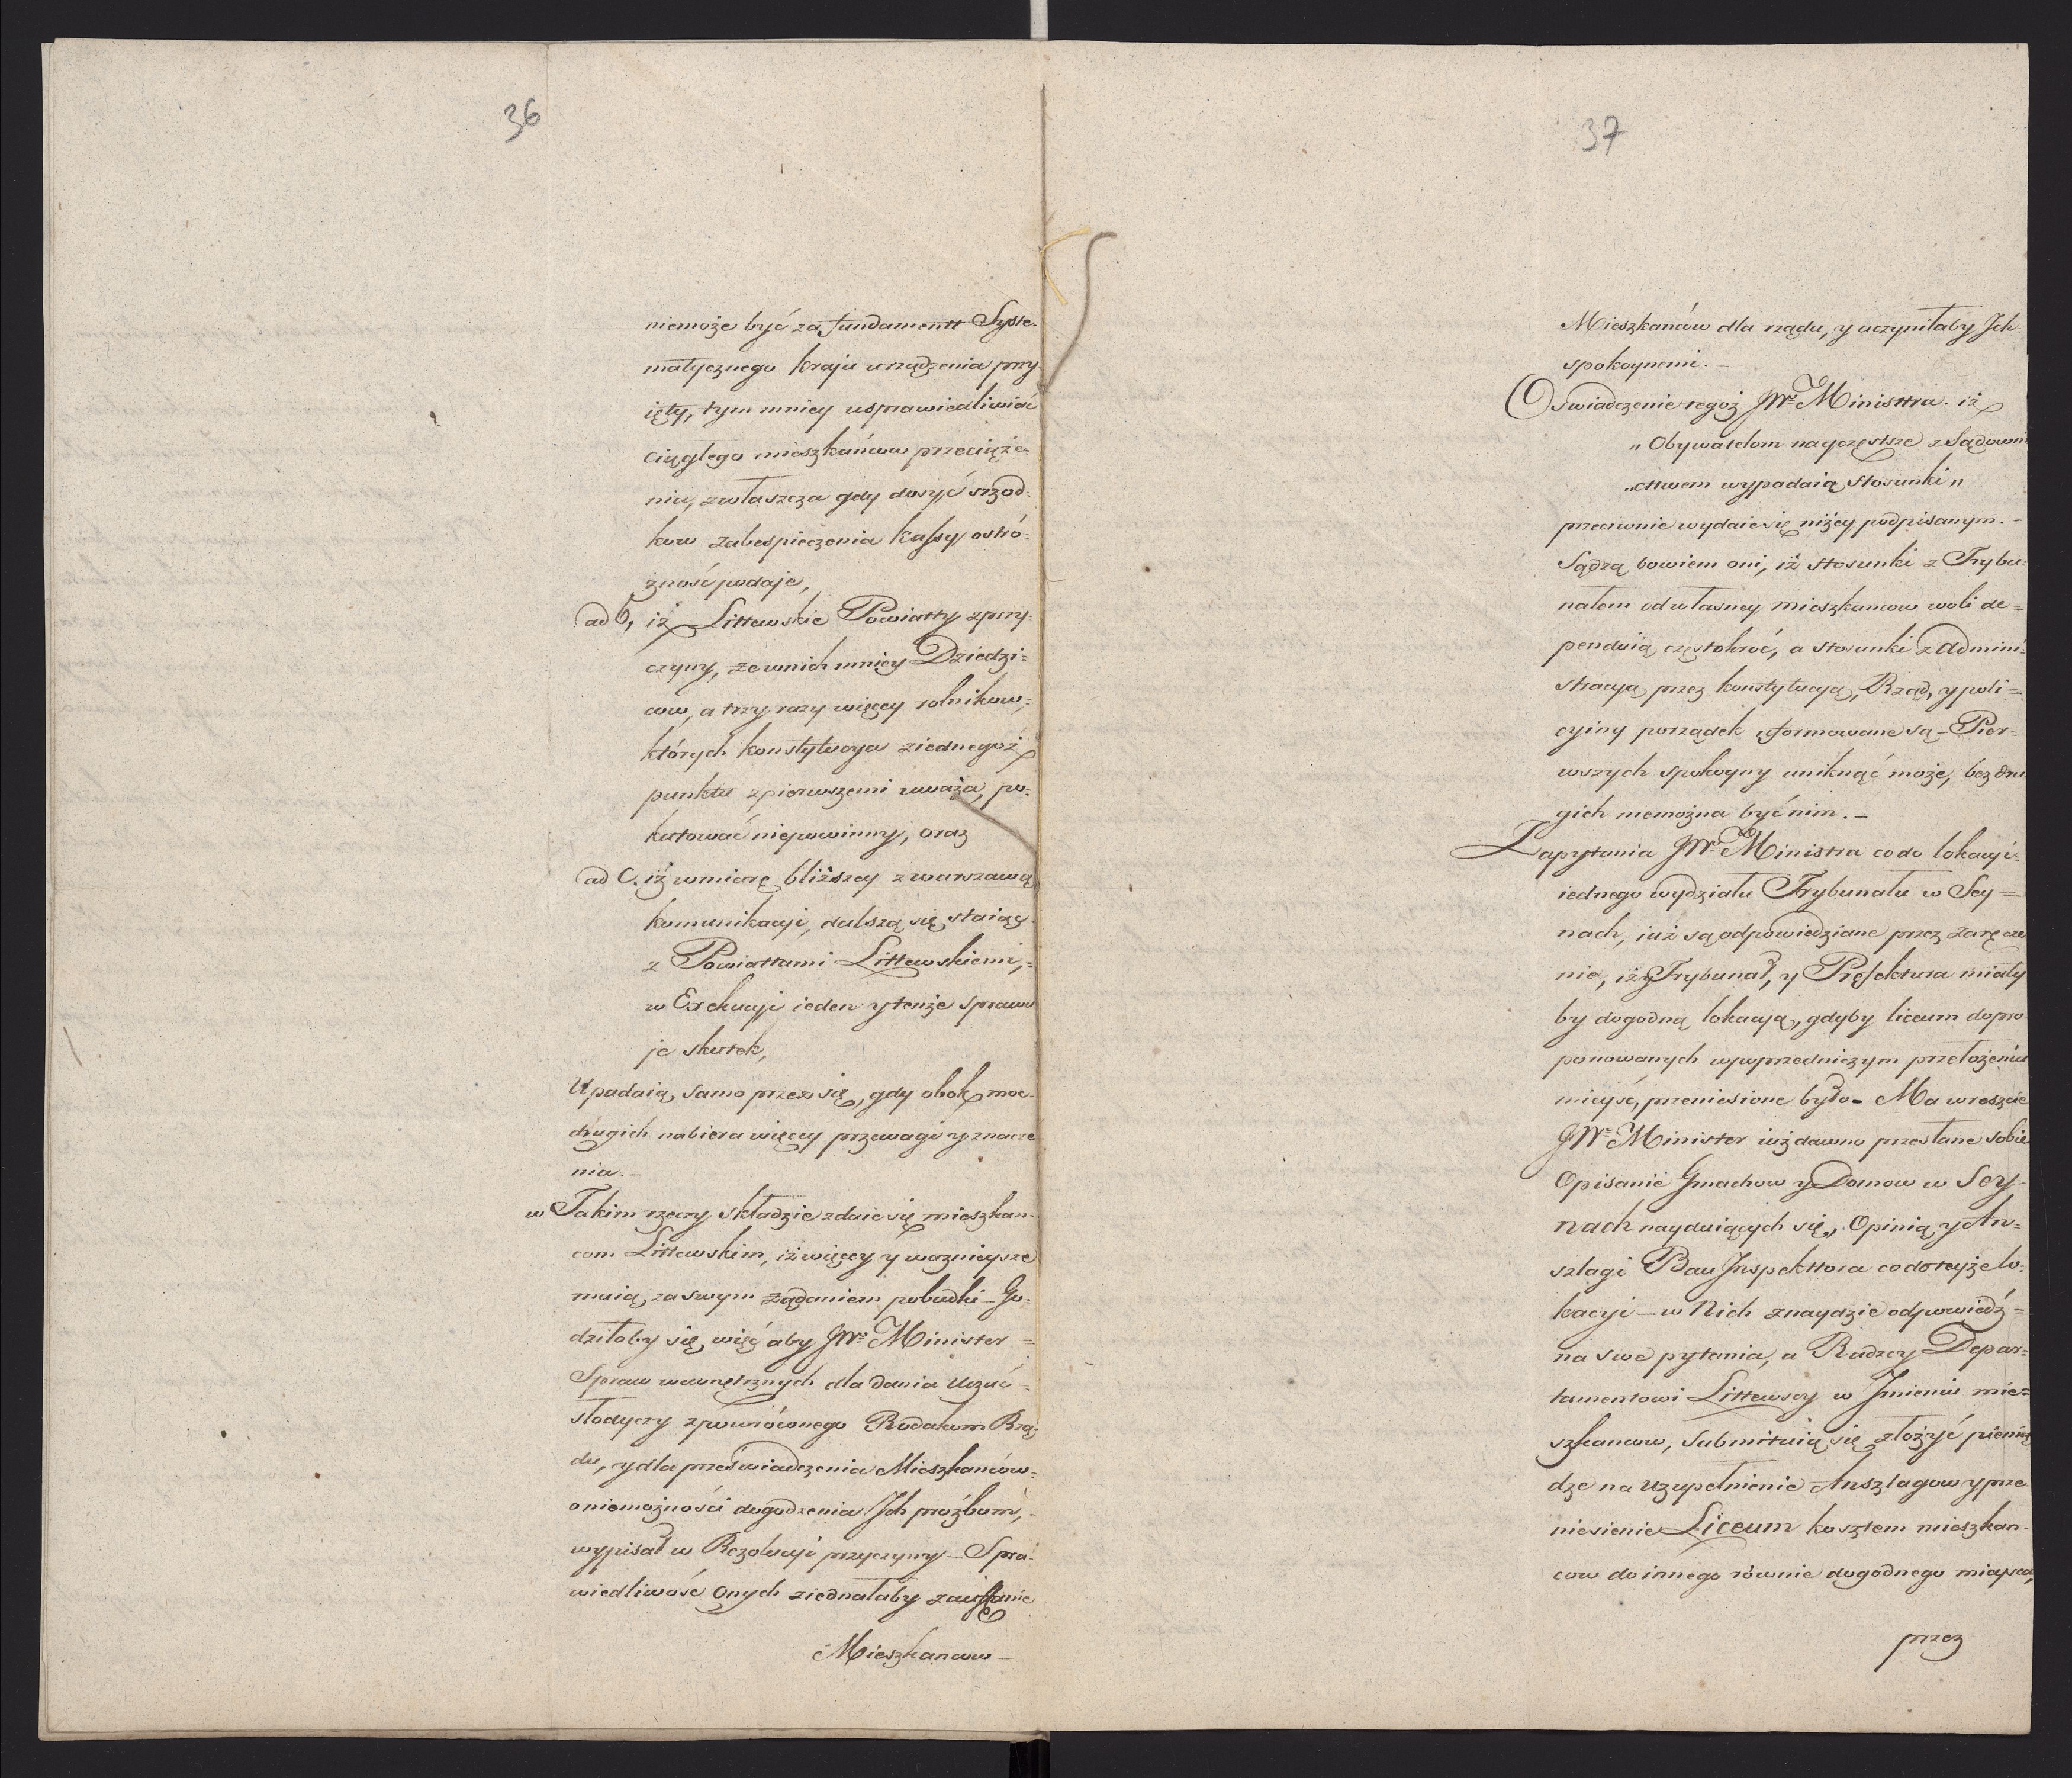 36
niemoże być za fundamentt Syste-
matycznego kraju urządzenia przy
ięty, tym mniey usprawiedliwiać
ciągłego mieszkańcow przeciąże-
niu, zwłaszcza gdy dosyć srzod-
kow zabespieczenia kassy ostró-
żność podaje,
ad b, iż Littewskie Powiatty zprzy-
czyny, że wnich mniey Dziedzi=
cow, a trzy razy więcey rolnikow,
których konstytucya ziednegoż
punktu zpierwszemi uważa, po-
kutować niepowinny, oraz
ad C. iż wmiarę bliższey z warszawą
komunikacyi, dalszą się staiąc
z Powiattami Littewskiemi,=
w Exekucyi ieden ytenże sprawu
je skutek,
Upadaią samo przez się, gdy obok moc
drugich nabiera więcey przewagi y znacze
nia.-
w Takim rzeczy składzie zdaie się mieszkan-
com Littewskim, iż więcey y ważnieysze
maią za swym żądaniem pobudki - Go-
dziłoby się, więć aby JWy Minister =
Spraw wewnętrznych dla dania uczuć -
słodyczy zpowróconego Rodakom Rzą-
du, y dla przeświadczenia Mieszkancow-
o niemożności dogodzenia Jch proźbom,-
wypisał w Rezolucyi przyczyny - Spra-
wiedliwość onych ziednałaby zauffanie
Mieszkancow -
37
Mieszkanców dla rządu, y uczyniłaby Jch-
spokoynemi. -
Oswiadczenie tegoż JWo Ministtra. iż
„Obywatelom nayczęstsze z Sądowni
„cttwem wypadaią stosunki"
przeciwnie wydaie się niżey podpisanym. -
Sądzą bowiem oni, iż stosunki z Trybu-
nałem od własney mieszkancow woli de=
penduią częstokroć, a stosunki z Admini-
stracyą przez konstytucyą, Rząd, y poli=
cyiny porządek uformowane są - Pier-
wszych spokoyny uniknąć może, bez dru
gich niemożna być nim. -
Zapytania JWo Ministra co do lokacyi-
iednego wydziału Trybunału w Sey=
nach, iuż są odpowiedziane przez zaręcze
nie, iż Trybunał, y Prefektura miały
by dogodną lokacyą, gdyby liceum dopro
ponowanych w poprzedniczym przełożeniu
mieysć, przeniesione było - Ma wreszcie
JWy Minister iuż dawno przesłane sobie
Opisanie Gmachow y Domow w Sey-
nach nayduiących się, Opinią y An=
szlagi Bau Jnspekttora codoteyże lo-
kacyi - w Nich znaydzie odpowiedź=
na swe pytania, a Radzcy Depar=
tamentowi Littewscy w Jmieniu mie=
szkancow, submittuią się złożyć pienią
dze na uzupełnienie Anszlagow y prze
niesienie Liceum kosztem mieszkan-
cow do innego równie dogodnego mieysca,
przez